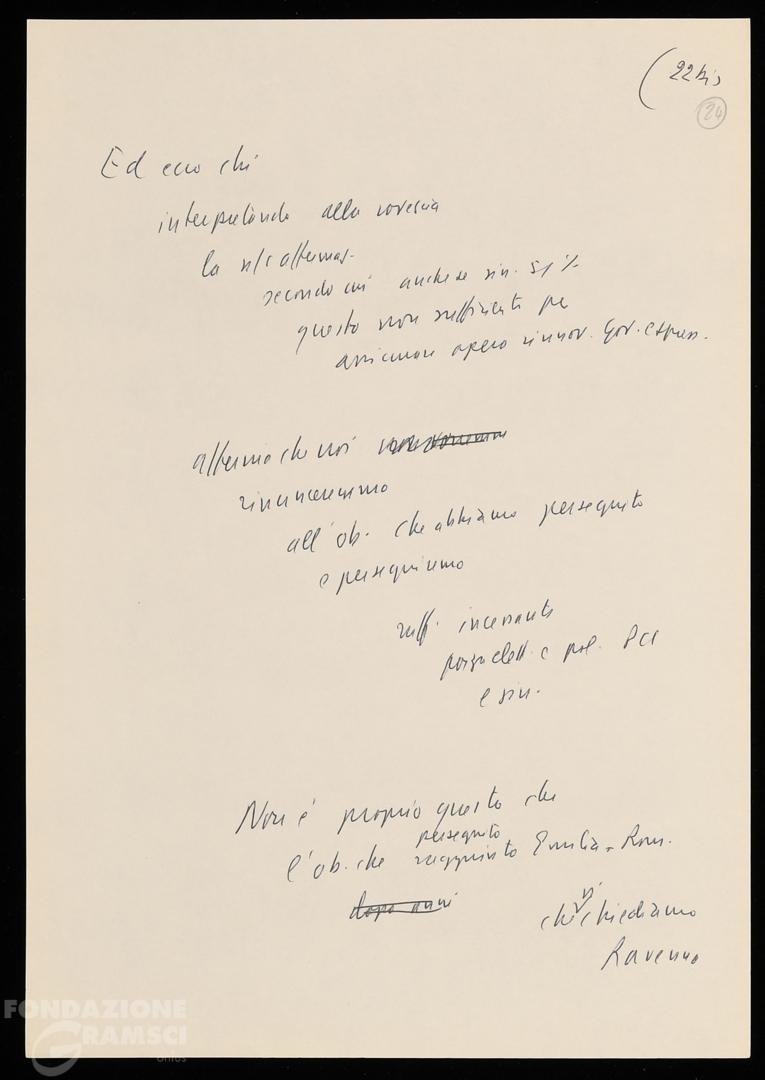 (22 bis
24
Ed ecco chi
interpretando alla rovescia
la n/s affermaz.
secondo cui anche se sin. 51%
questo non sufficiente per
assicurare opera rinnov. Gov. espress.
afferma che noi
rinunceremmo
all'ob. che abbiamo perseguito
e perseguiamo
raff. incessante
forza elett. e pol. PCI
e sin.
Non è proprio questo che
perseguito
l'ob. che raggiunto Emilia-Rom.
dopo anni
vi
che chiediamo
Ravenna
FONDAZIONE
GRAMSCI
onlus